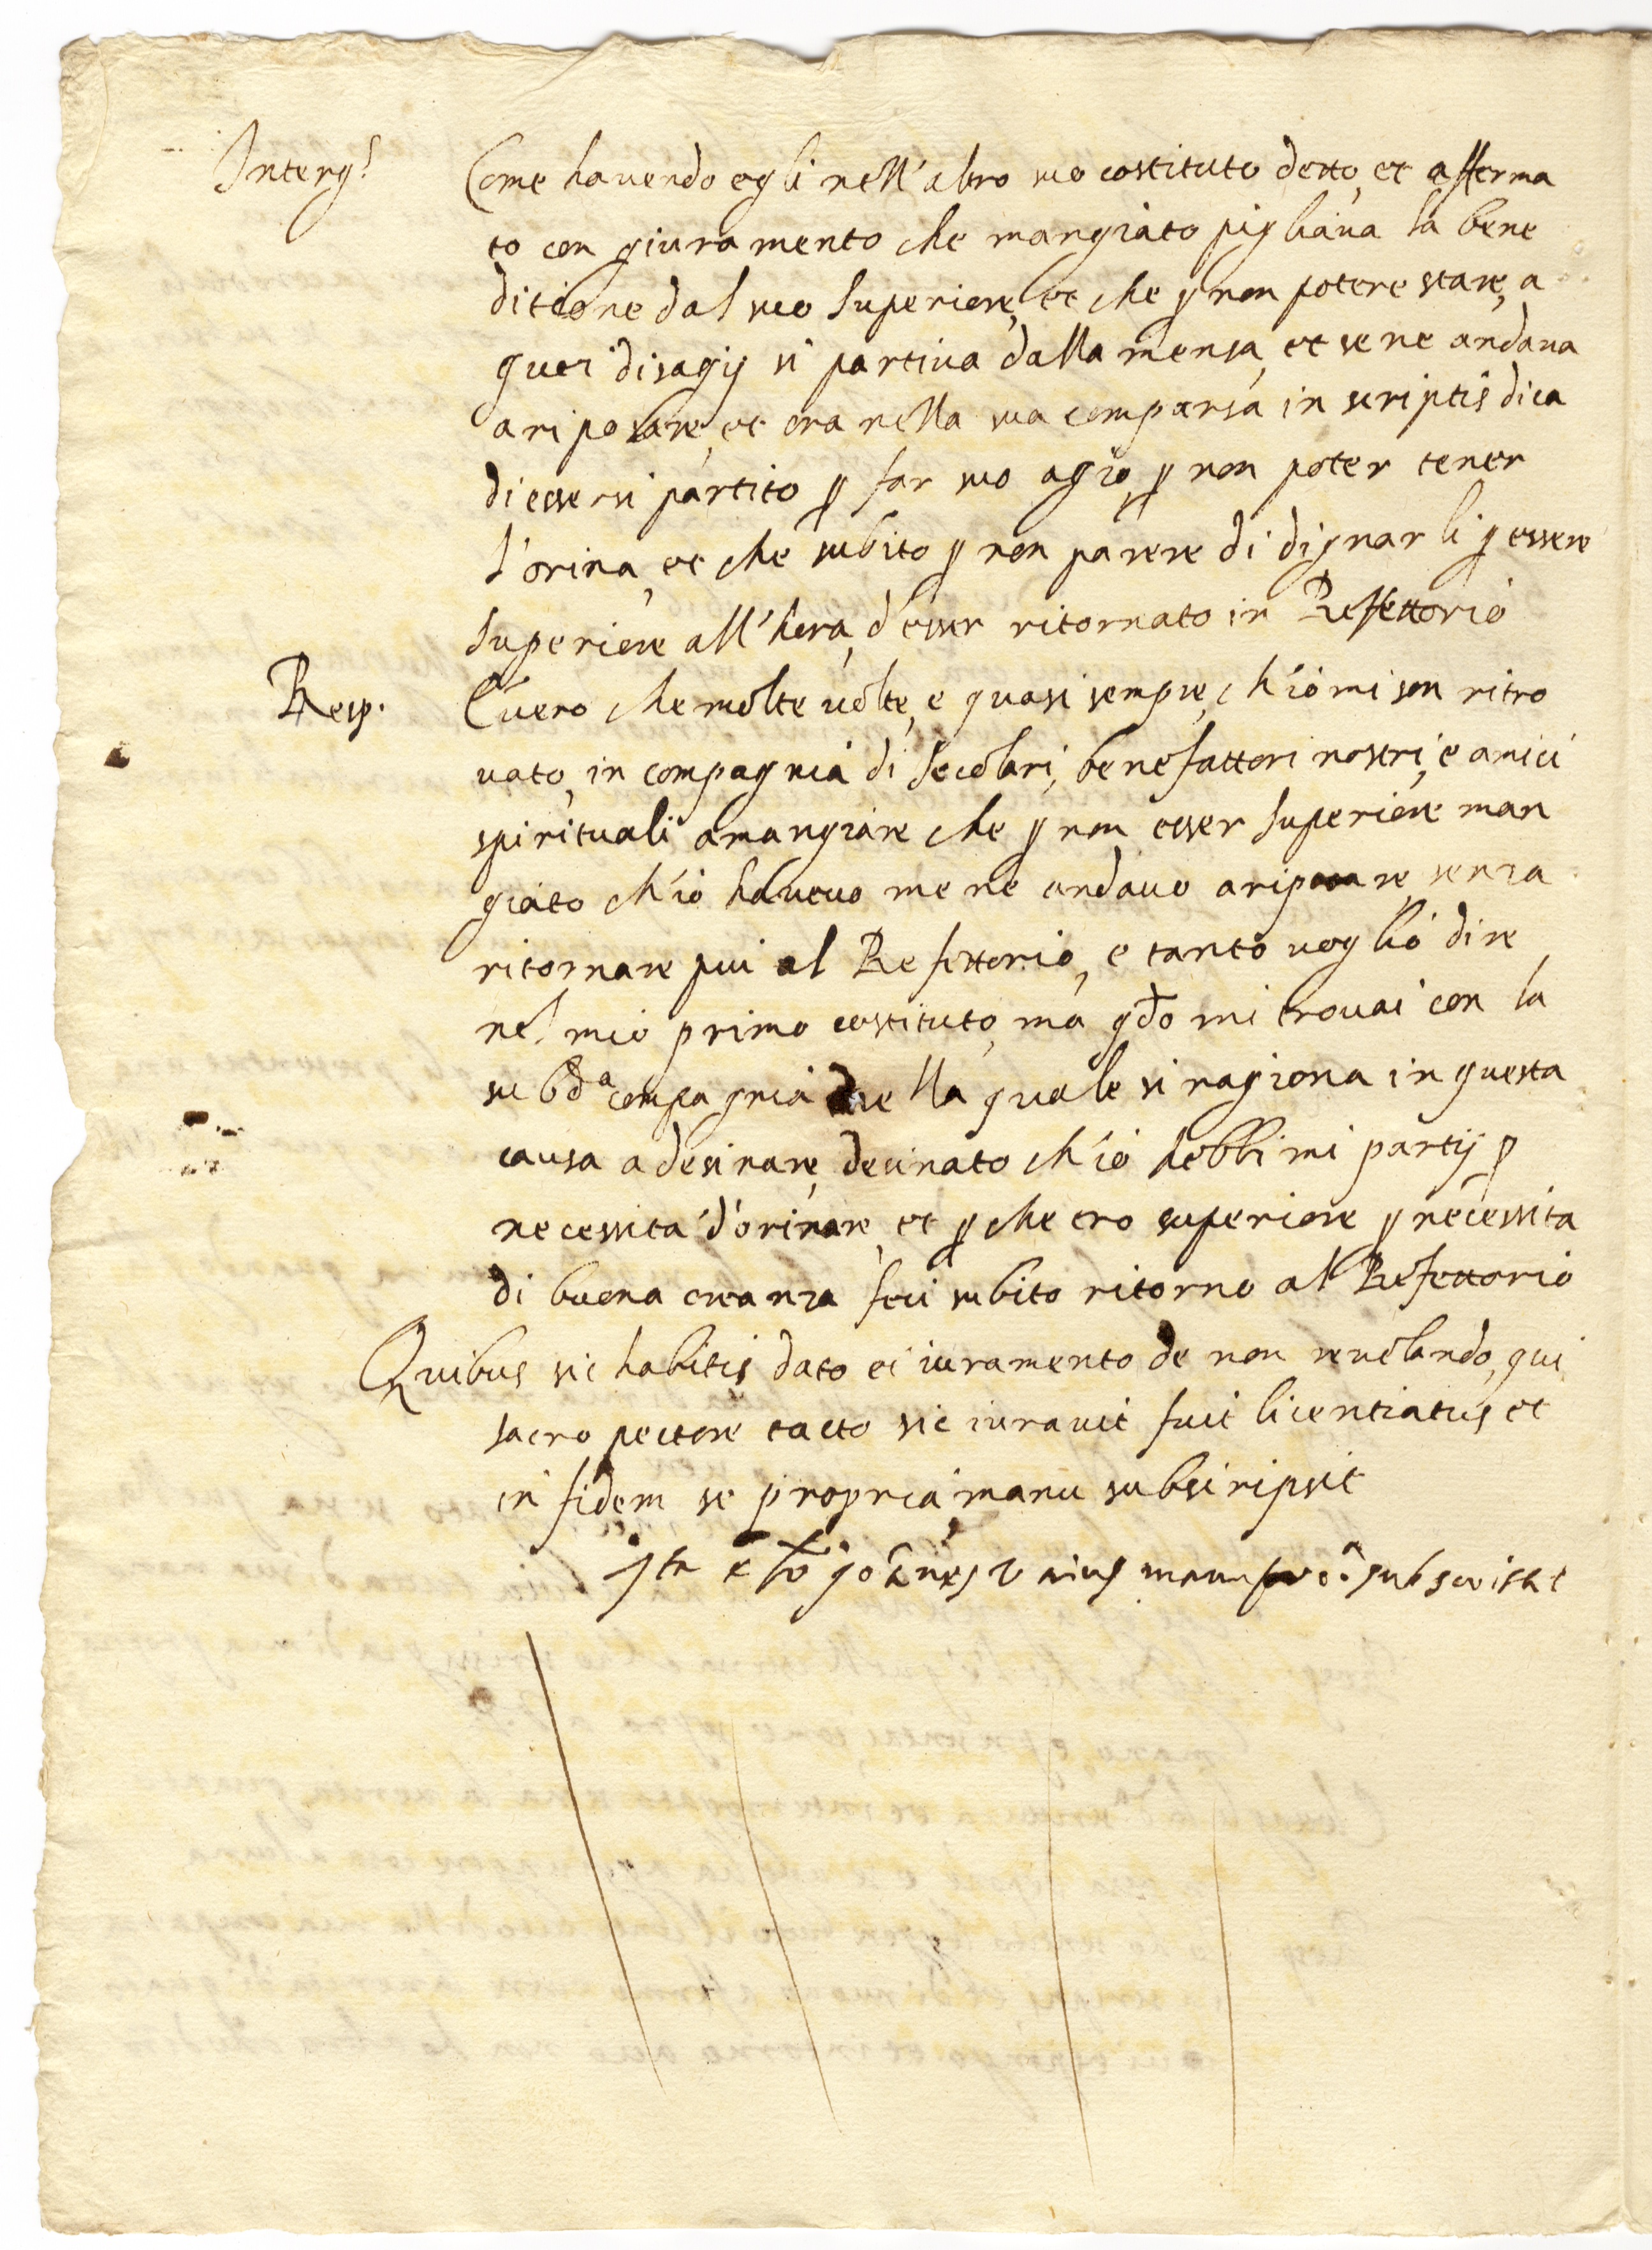 Interg.^s Come havendo egli nell'altro suo costituto detto, et afferma
to con giuramento che mangiato pigliava la bene
ditione dal suo superiore, et che p non potere stare, a
quei disagij si partiva dalla mensa, et se ne andava
a riposare, et ora nella sua comparsa in scriptis dica
di essersi partito p far suo agio, p non poter tener
l'orina, et che subito p non parere di dignarli p essere
superiore all'hora, d'esser ritornato in Refettorio
Resp. È vero che molte volte, e quasi sempre, ch'io mi son ritro
vato, in compagnia di secolari, benefattori nostri, e amici
spirituali a mangiare che p non esser superiore man
giato ch'io havevo me ne andavo a riposare, senza
ritornare piu al Refettorio, e tanto voglio dire
nel mio primo costituto, ma qdo mi trovai con la
subda compagnia della quale si ragiona in questa
causa a desinare, desinato ch'io hebbi mi partij p
necessità d'orinare, et p che ero superiore p necessita
di buona creanza feci subito ritorno al Refettorio
Quibus sic habitis dato ei iuramento de non revelando, qui
sacro pectore tacto sic iuravit fuit licentiatus et
in fidem se propria manu subscripsit
manu subscripsit